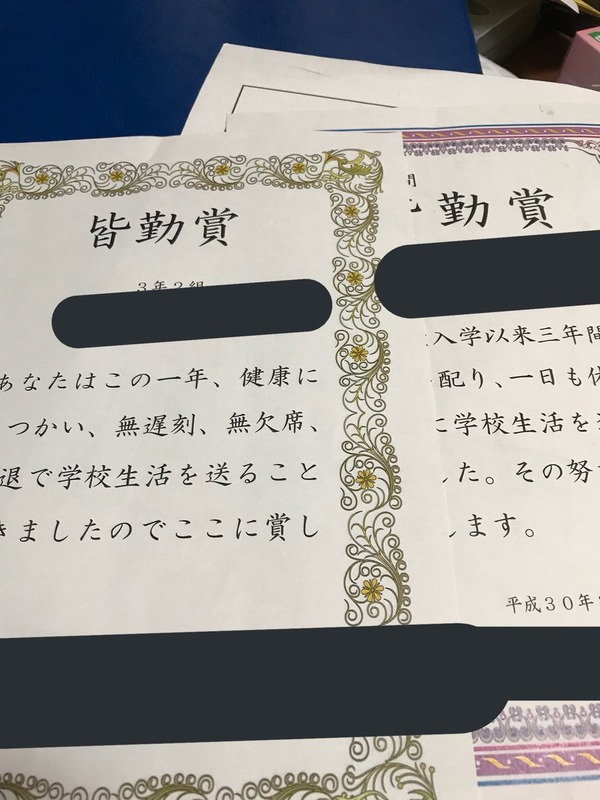 皆勤賞
３年２組
あなたはこの一年、健康に
つかい、無遅刻、無欠席、
退で学校生活を送ること
きましたのでここに賞し
間
勤賞
入学以来三年間
配り、一日も休
に学校生活を
した。その努
します。
平成３０年